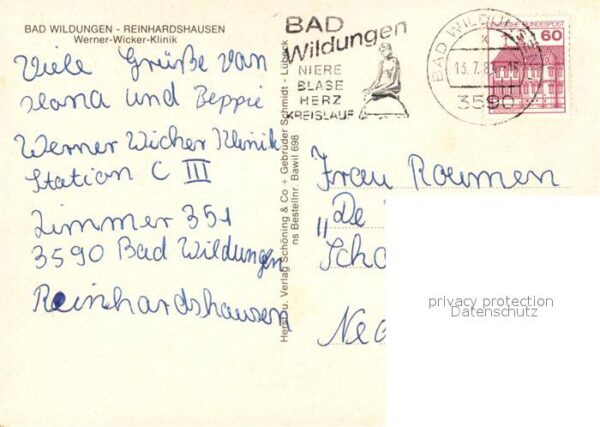 BAD WILDUNGEN - REINHARDSHAUSEN
Werner-Wicker-Klinik
Viele Grüße von
Ilona und Beppie
Werner Wicker Klinik
Station C III
Zimmer 351
3590 Bad Wildungen
Reinhardshausen
Verlag Schöning & Co + Gebrüder Schmidt - Lübeck
Bestellnr. Bawil 698
BAD
Wildungen
NIERE
BLASE
HERZ
KREISLAUF
BAD WILDUNGEN
13.7.8
3590
BUNDESPOST
60
Frau Roumen
"De
Scho
Ne
privacy protection
Datenschutz